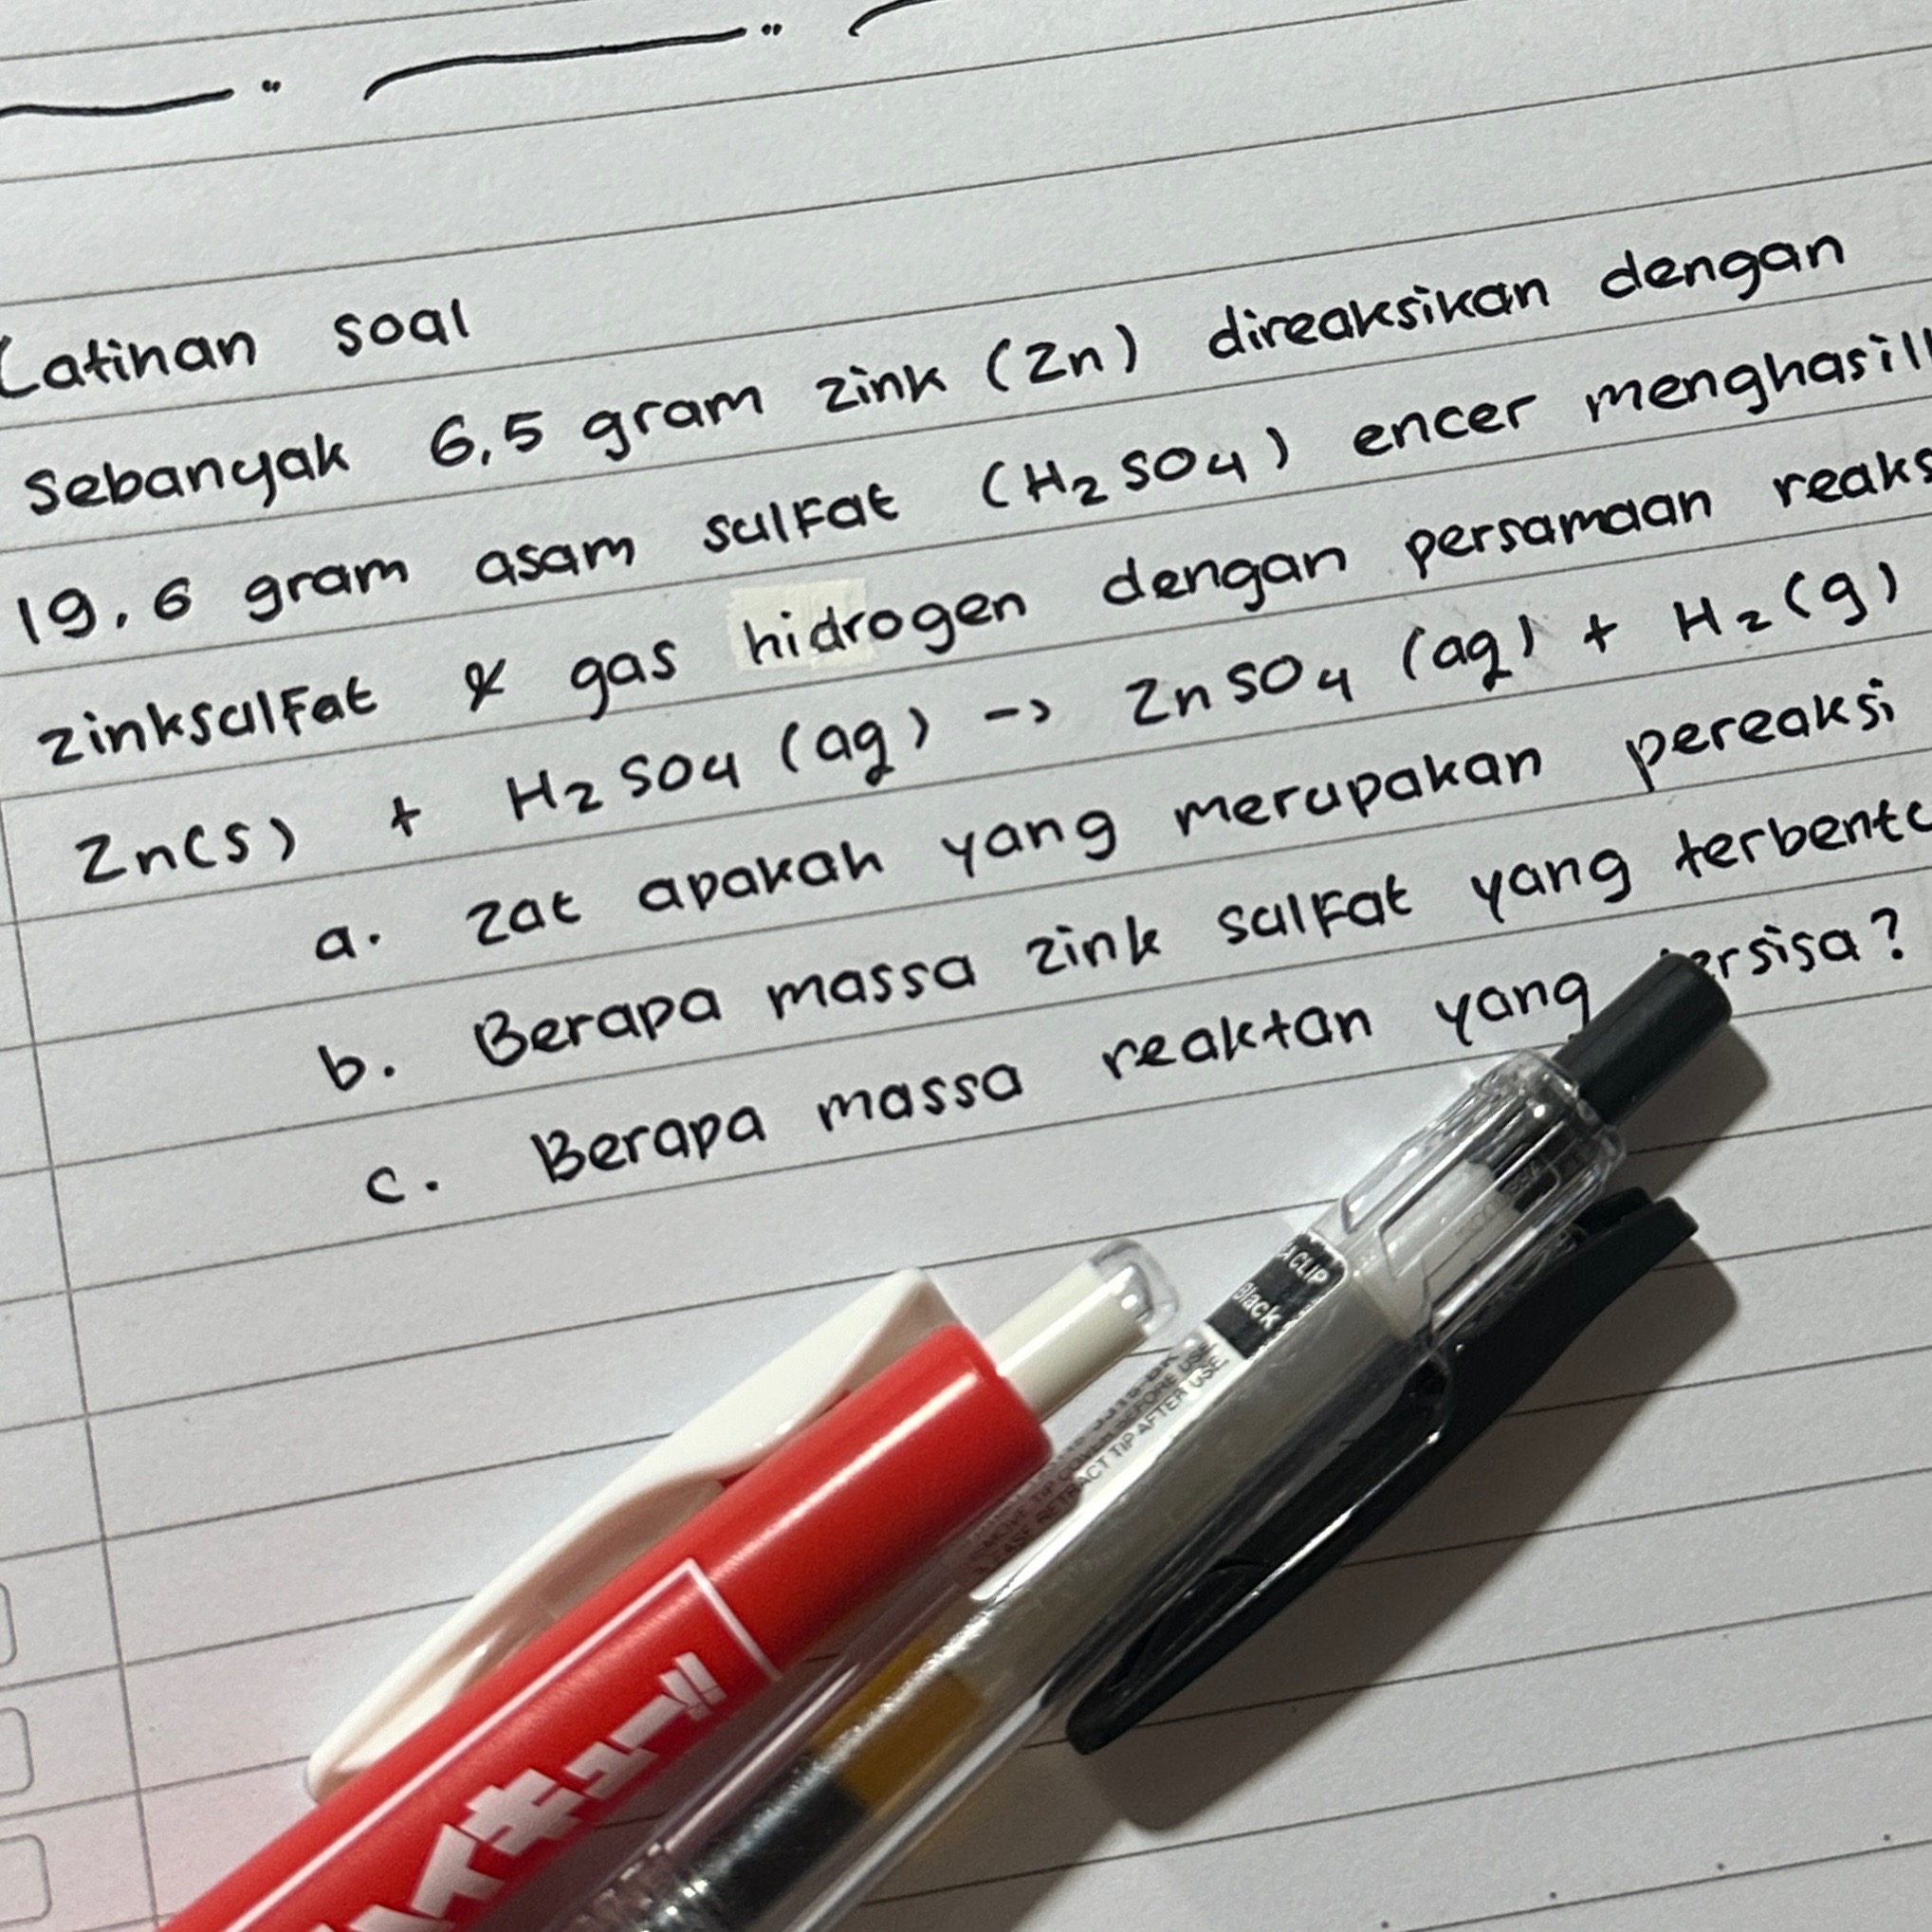 Latihan soal
Sebanyak 6,5 gram zink (Zn) direaksikan dengan
19,6 gram asam sulfat (H₂SO₄) encer menghasill
zinksulfat & gas hidrogen dengan persamaan reaks
Zn(s) + H₂SO₄ (aq) -> ZnSO₄ (aq) + H₂(g)
a. zat apakah yang merupakan pereaksi
b. Berapa massa zink sulfat yang terbent
c. Berapa massa reaktan yang tersisa?
A CLIP
Black
MOVE TIP COVER BEFORE USE
EASE RETRACT TIP AFTER USE
ハイキュー!!